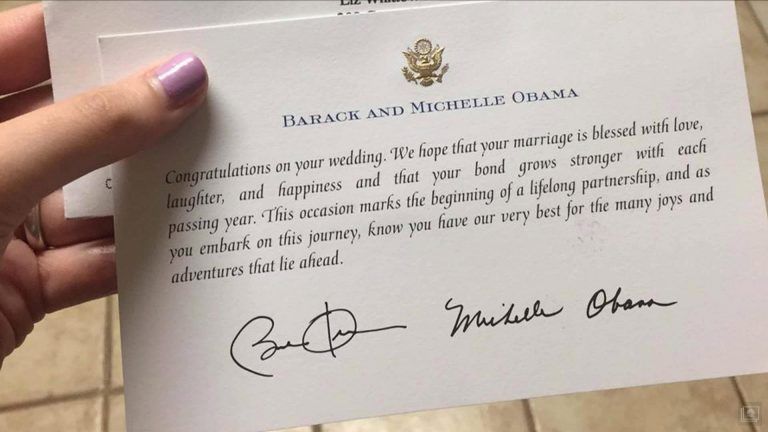 Liz
BARACK AND MICHELLE OBAMA
Congratulations on your wedding. We hope that your marriage is blessed with love,
laughter, and happiness and that your bond grows stronger with each
passing year. This occasion marks the beginning of a lifelong partnership, and as
you embark on this journey, know you have our very best for the many joys and
adventures that lie ahead.
Michelle Obama